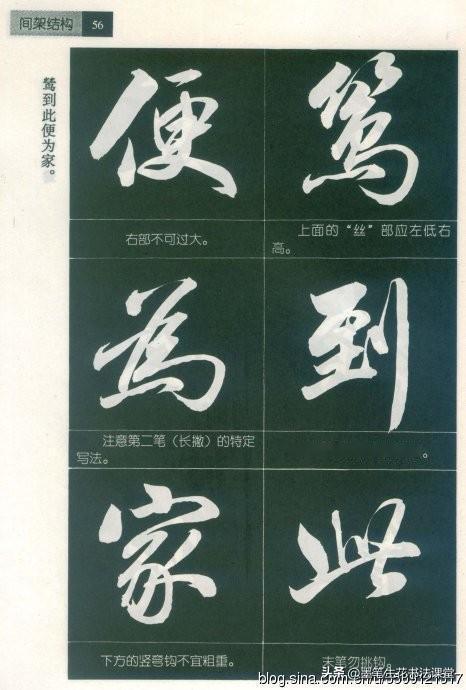 间架结构 56
鸶到此便为家。
鸶
上面的“丝”部应左低右
高。
到
。
此
末笔勿挑钩。
便
右部不可过大。
為
注意第二笔（长撇）的特定
写法。
家
下方的竖弯钩不宜粗重。
头条@黑笔生花书法课堂